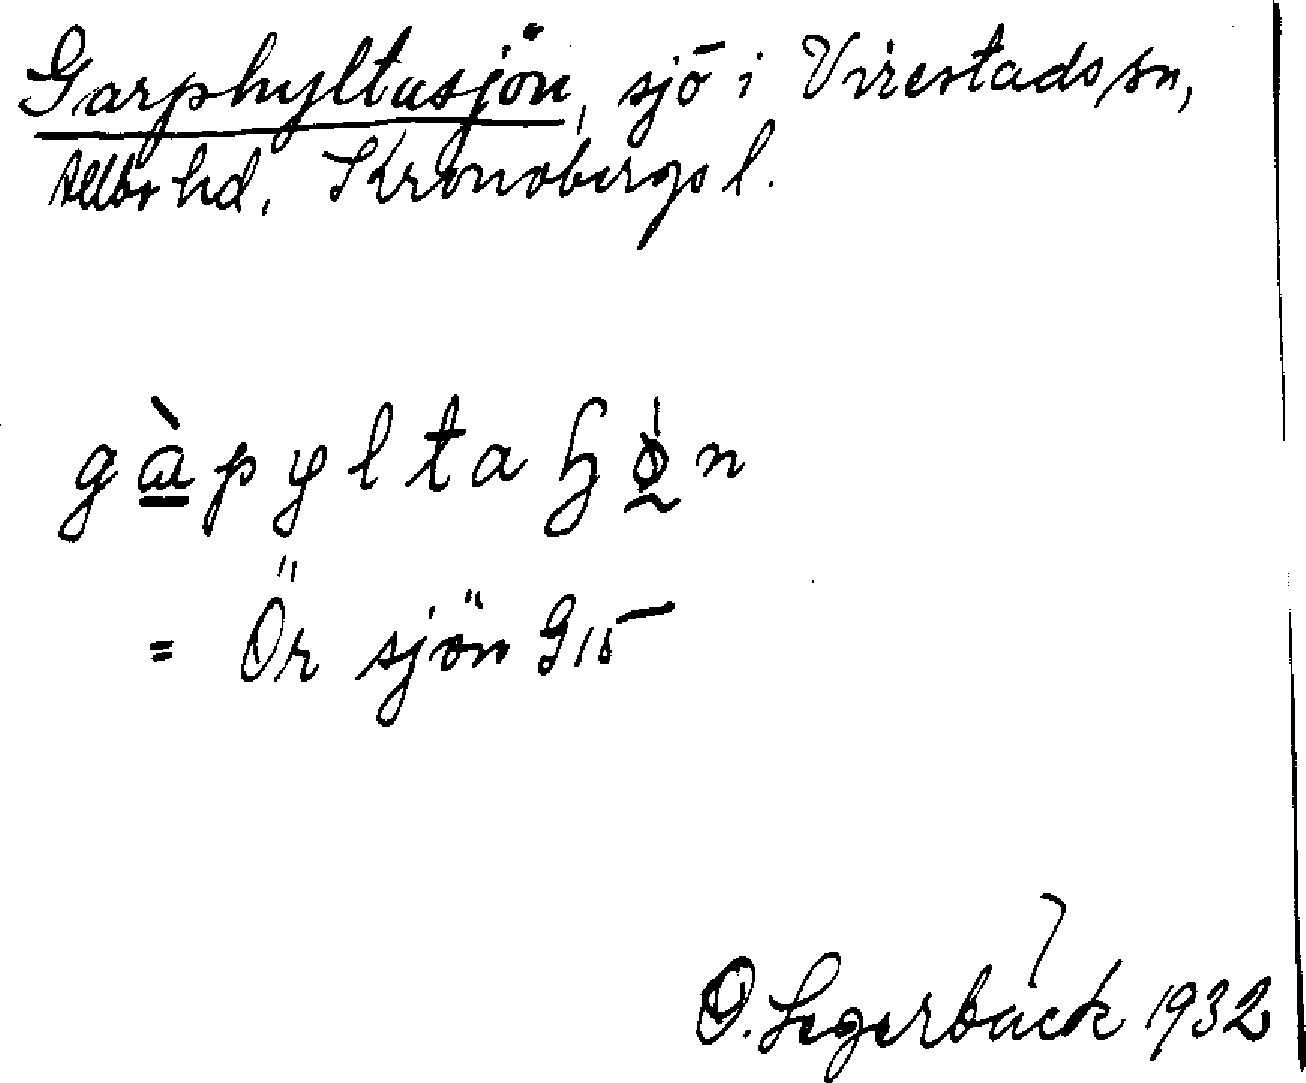 Garphyltasjön, sjö i Virestads sn,
Allbo hd, Kronobergs l.
gàpyltaɧø̀n
= Örsjön G15
O. Segerbäck 1932